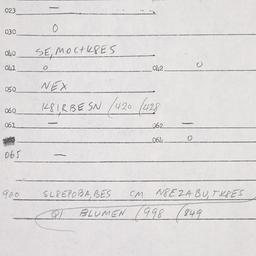 023 —
030 O
040 SE, MOCTK8ES
041 O 042 O
050 NEX
060 K81RBESN /420 /428
061 — 062 —
064 O
065 —
900 SL8EPOBA, BES CM N8EZABU, TK8ES
Q1 BLUMEN /998 /849